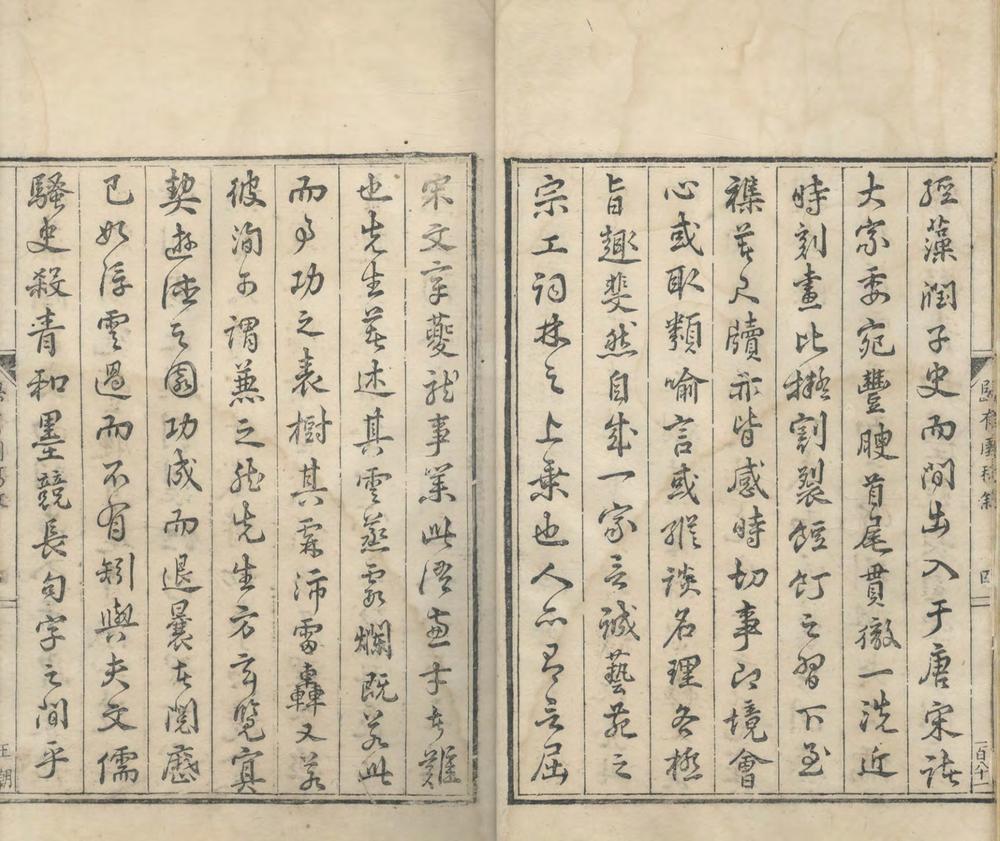 經藻潤子史而間出入于唐宋諸
大家委宛豐腴首尾貫徹一洗近
時刻畫比擬割裂飣之習下至
雜著尺牘亦皆感時切事即境會
心或取類喻言或縱談名理各極
旨趣斐然自成一家言誠藝苑之
宗工詞林之上乘也人亦有言屈
宋文章夔龍事業此兼才者難
也先生著述其雲蒸霞爛既若此
而事功之表樹其霖沛雷轟又若
彼洵可謂兼之矣先生方玄覽冥
契遊之園功成而退曩在閱歷
已如浮雲過而不有矧與夫文儒
騷史殺青和墨競長句字之間乎
四
一百八十一